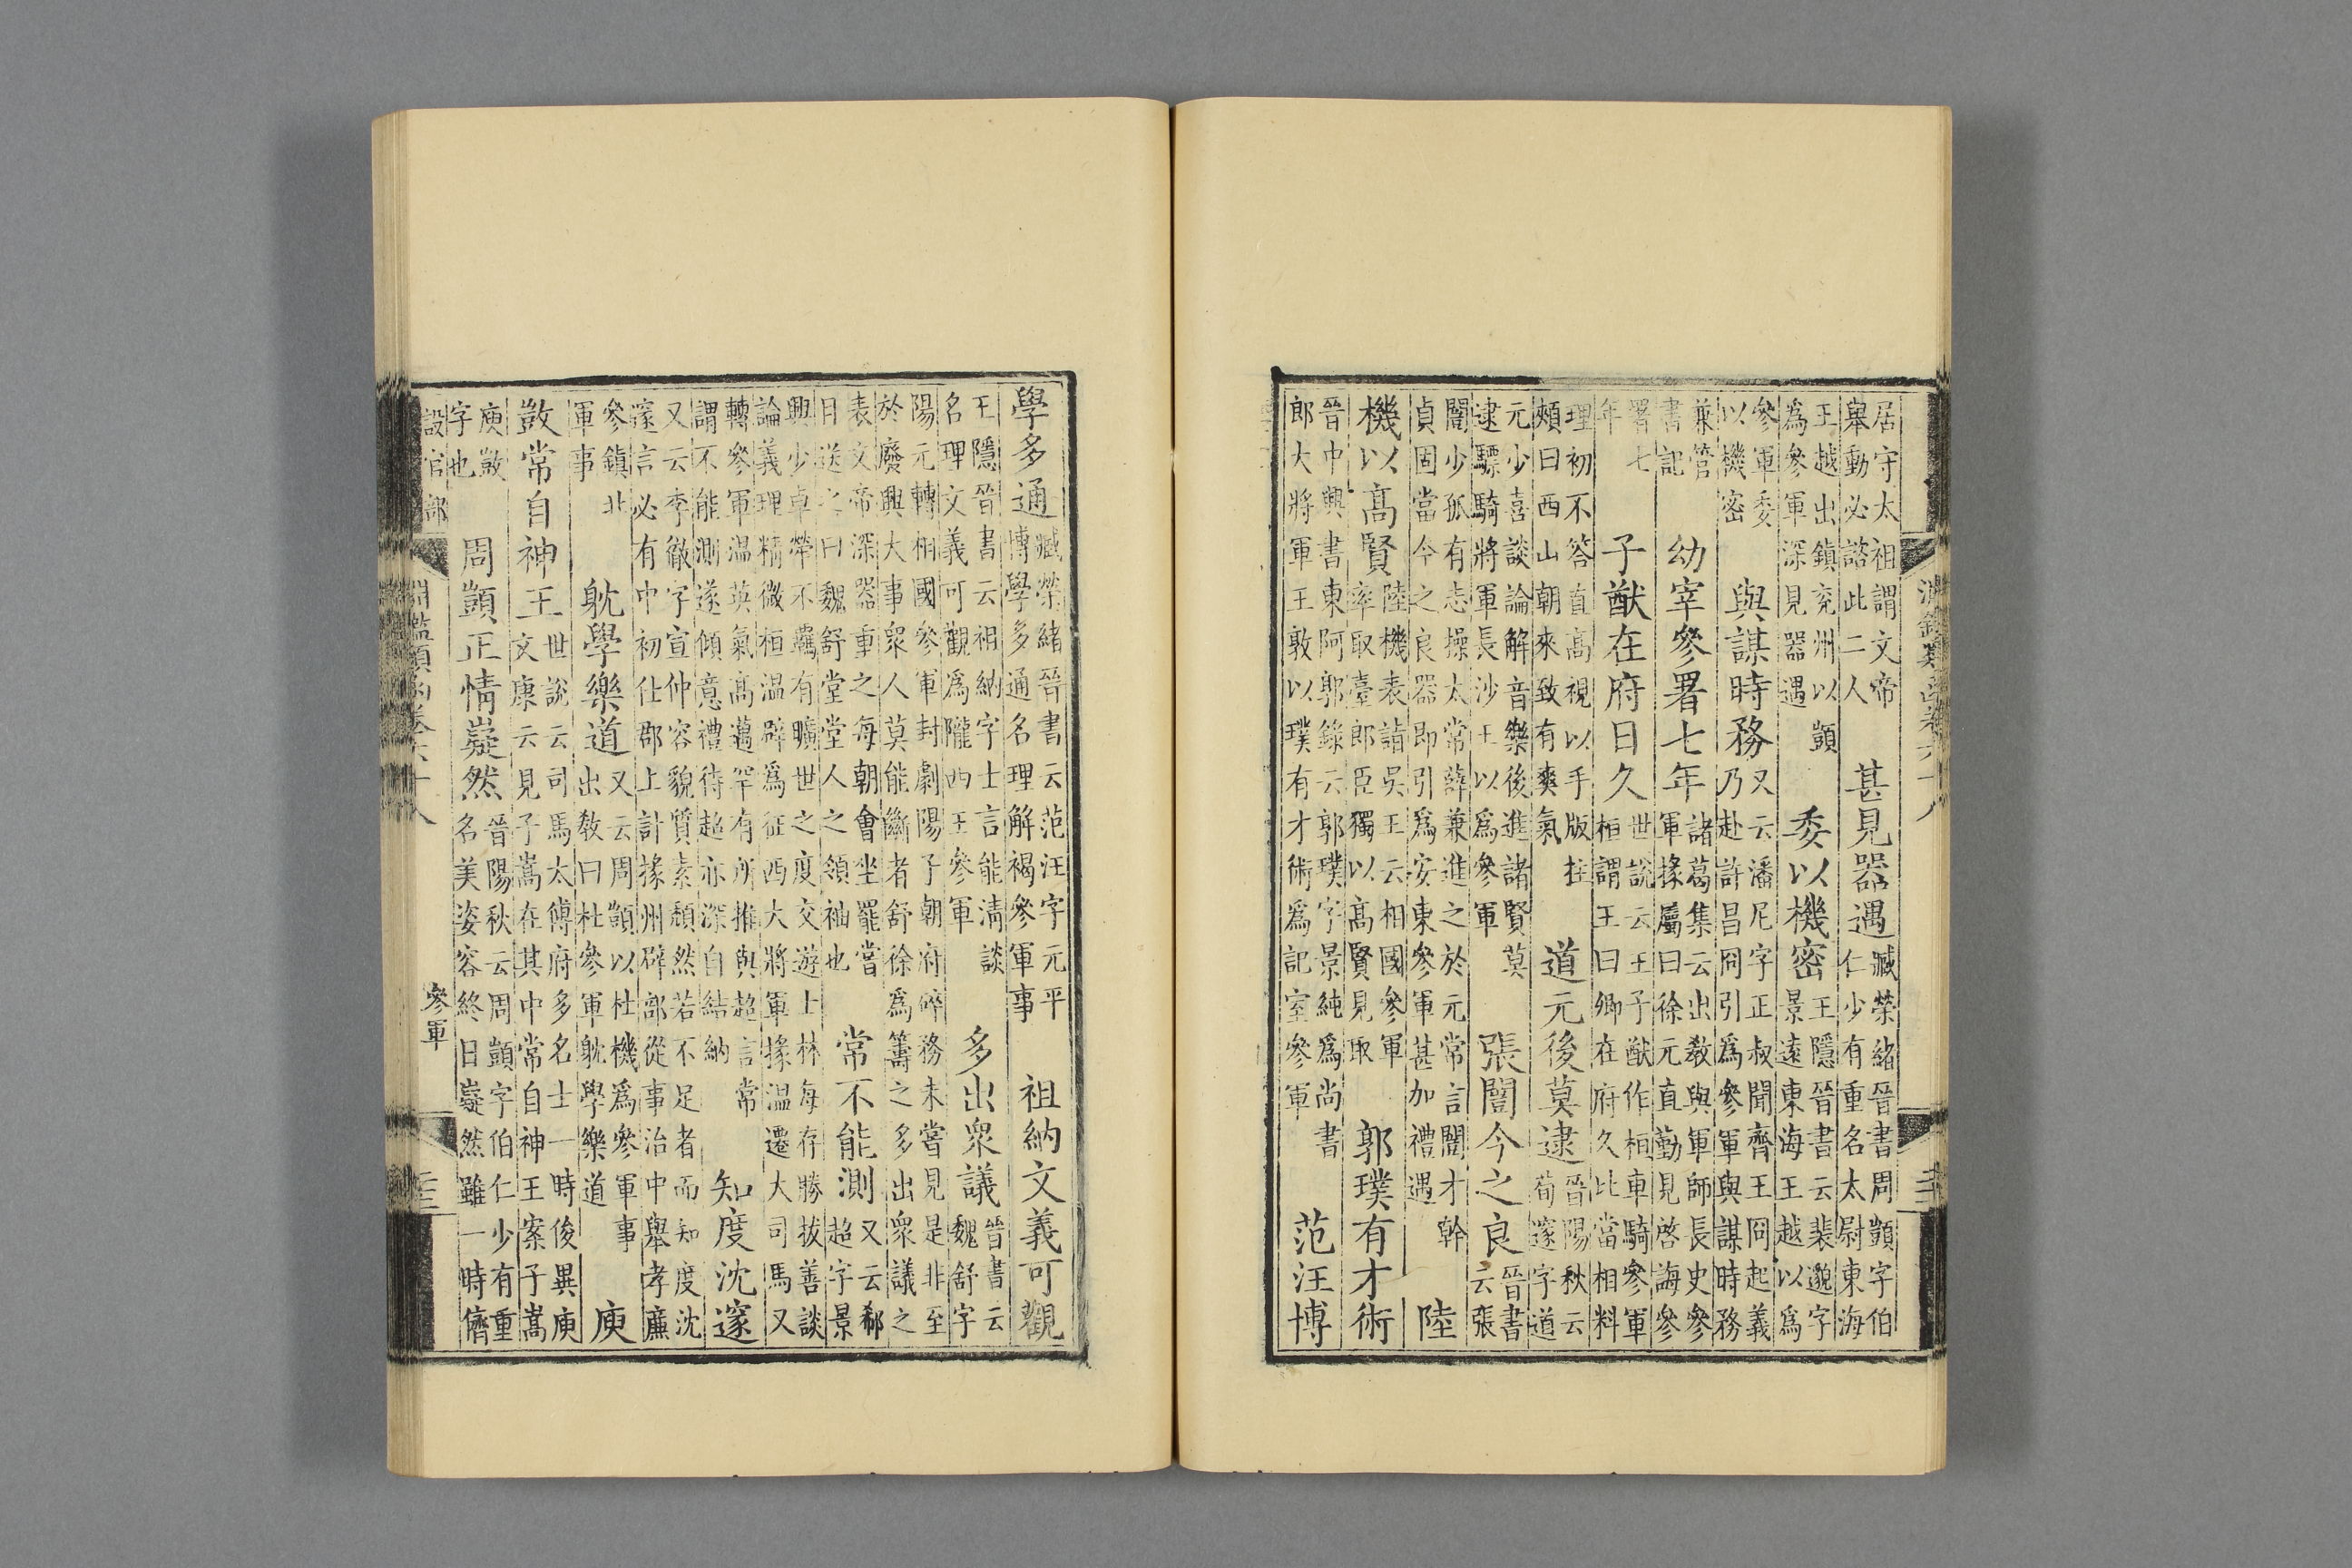 居守太祖謂文帝
舉動必諮此二人
甚見器遇
臧榮緒晉書周顗字伯
仁少有重名太尉東海
王越出鎮兖州以顗
為參軍深見器遇
委以機密
王隱晉書云裴邈字
景遠東海王越以為
參軍委
以機密
與謀時務
又云潘尼字正叔聞齊王冏起義
乃赴許昌冏引為參軍與謀時務
兼管
書記
幼宰參署七年
諸葛集云出教與軍師長史參
軍掾屬曰徐元直勤見啓誨參
署七
年
子猷在府日久
世說云王子猷作桓車騎參軍
桓謂王曰卿在府久比當相料
理初不答直高視以手版拄
頰曰西山朝來致有爽氣
道元後莫逮
晉陽秋云
荀邃字道
元少喜談論解音樂後進諸賢莫
逮驃騎將軍長沙王以為參軍
張闓今之良
晉書
云張
闓少孤有志操太常薛兼進之於元常言闓才幹
貞固當今之良器即引為安東參軍甚加禮遇
陸
機以高賢
陸機表詣吳王云相國參軍
率取臺郎臣獨以高賢見取
郭璞有才術
晉中興書東阿郭錄云郭璞字景純為尚書
郎大將軍王敦以璞有才術為記室參軍
范汪博
學多通
臧榮緒晉書云范汪字元平
博學多通名理解褐參軍事
祖納文義可觀
王隱晉書云祖納字士言能清談
名理文義可觀為隴西王參軍
多出眾議
晉書云
魏舒字
陽元轉相國參軍封劇陽子朝府碎務未嘗見是非至
於廢興大事眾人莫能斷者舒徐為籌之多出眾議之
表文帝深器重之每朝會坐罷嘗
目送之曰魏舒堂堂人之領袖也
常不能測
又云郗
超字景
興少卓犖不羈有曠世之度交遊士林每存勝拔善談
論義理精微桓溫辟為征西大將軍掾溫遷大司馬又
轉參軍溫英氣高邁罕有所推與超言常
謂不能測遂傾意禮待超亦深自結納
知度沈邃
又云李徹字宣仲容貌質素頹然若不足者而知度沈
邃言必有中初仕郡上計掾州辟部從事治中舉孝廉
參鎮北
軍事
躭學樂道
又云周顗以杜機為參軍事
出教曰杜參軍躭學樂道
庾
敳常自神王
世說云司馬太傅府多名士一時俊異庾
文康云見子嵩在其中常自神王案子嵩
庾敳
字也
周顗正情嶷然
晉陽秋云周顗字伯仁少有重
名美姿容終日嶷然雖一時儕
設官部
淵鑑類函卷六十八
參軍